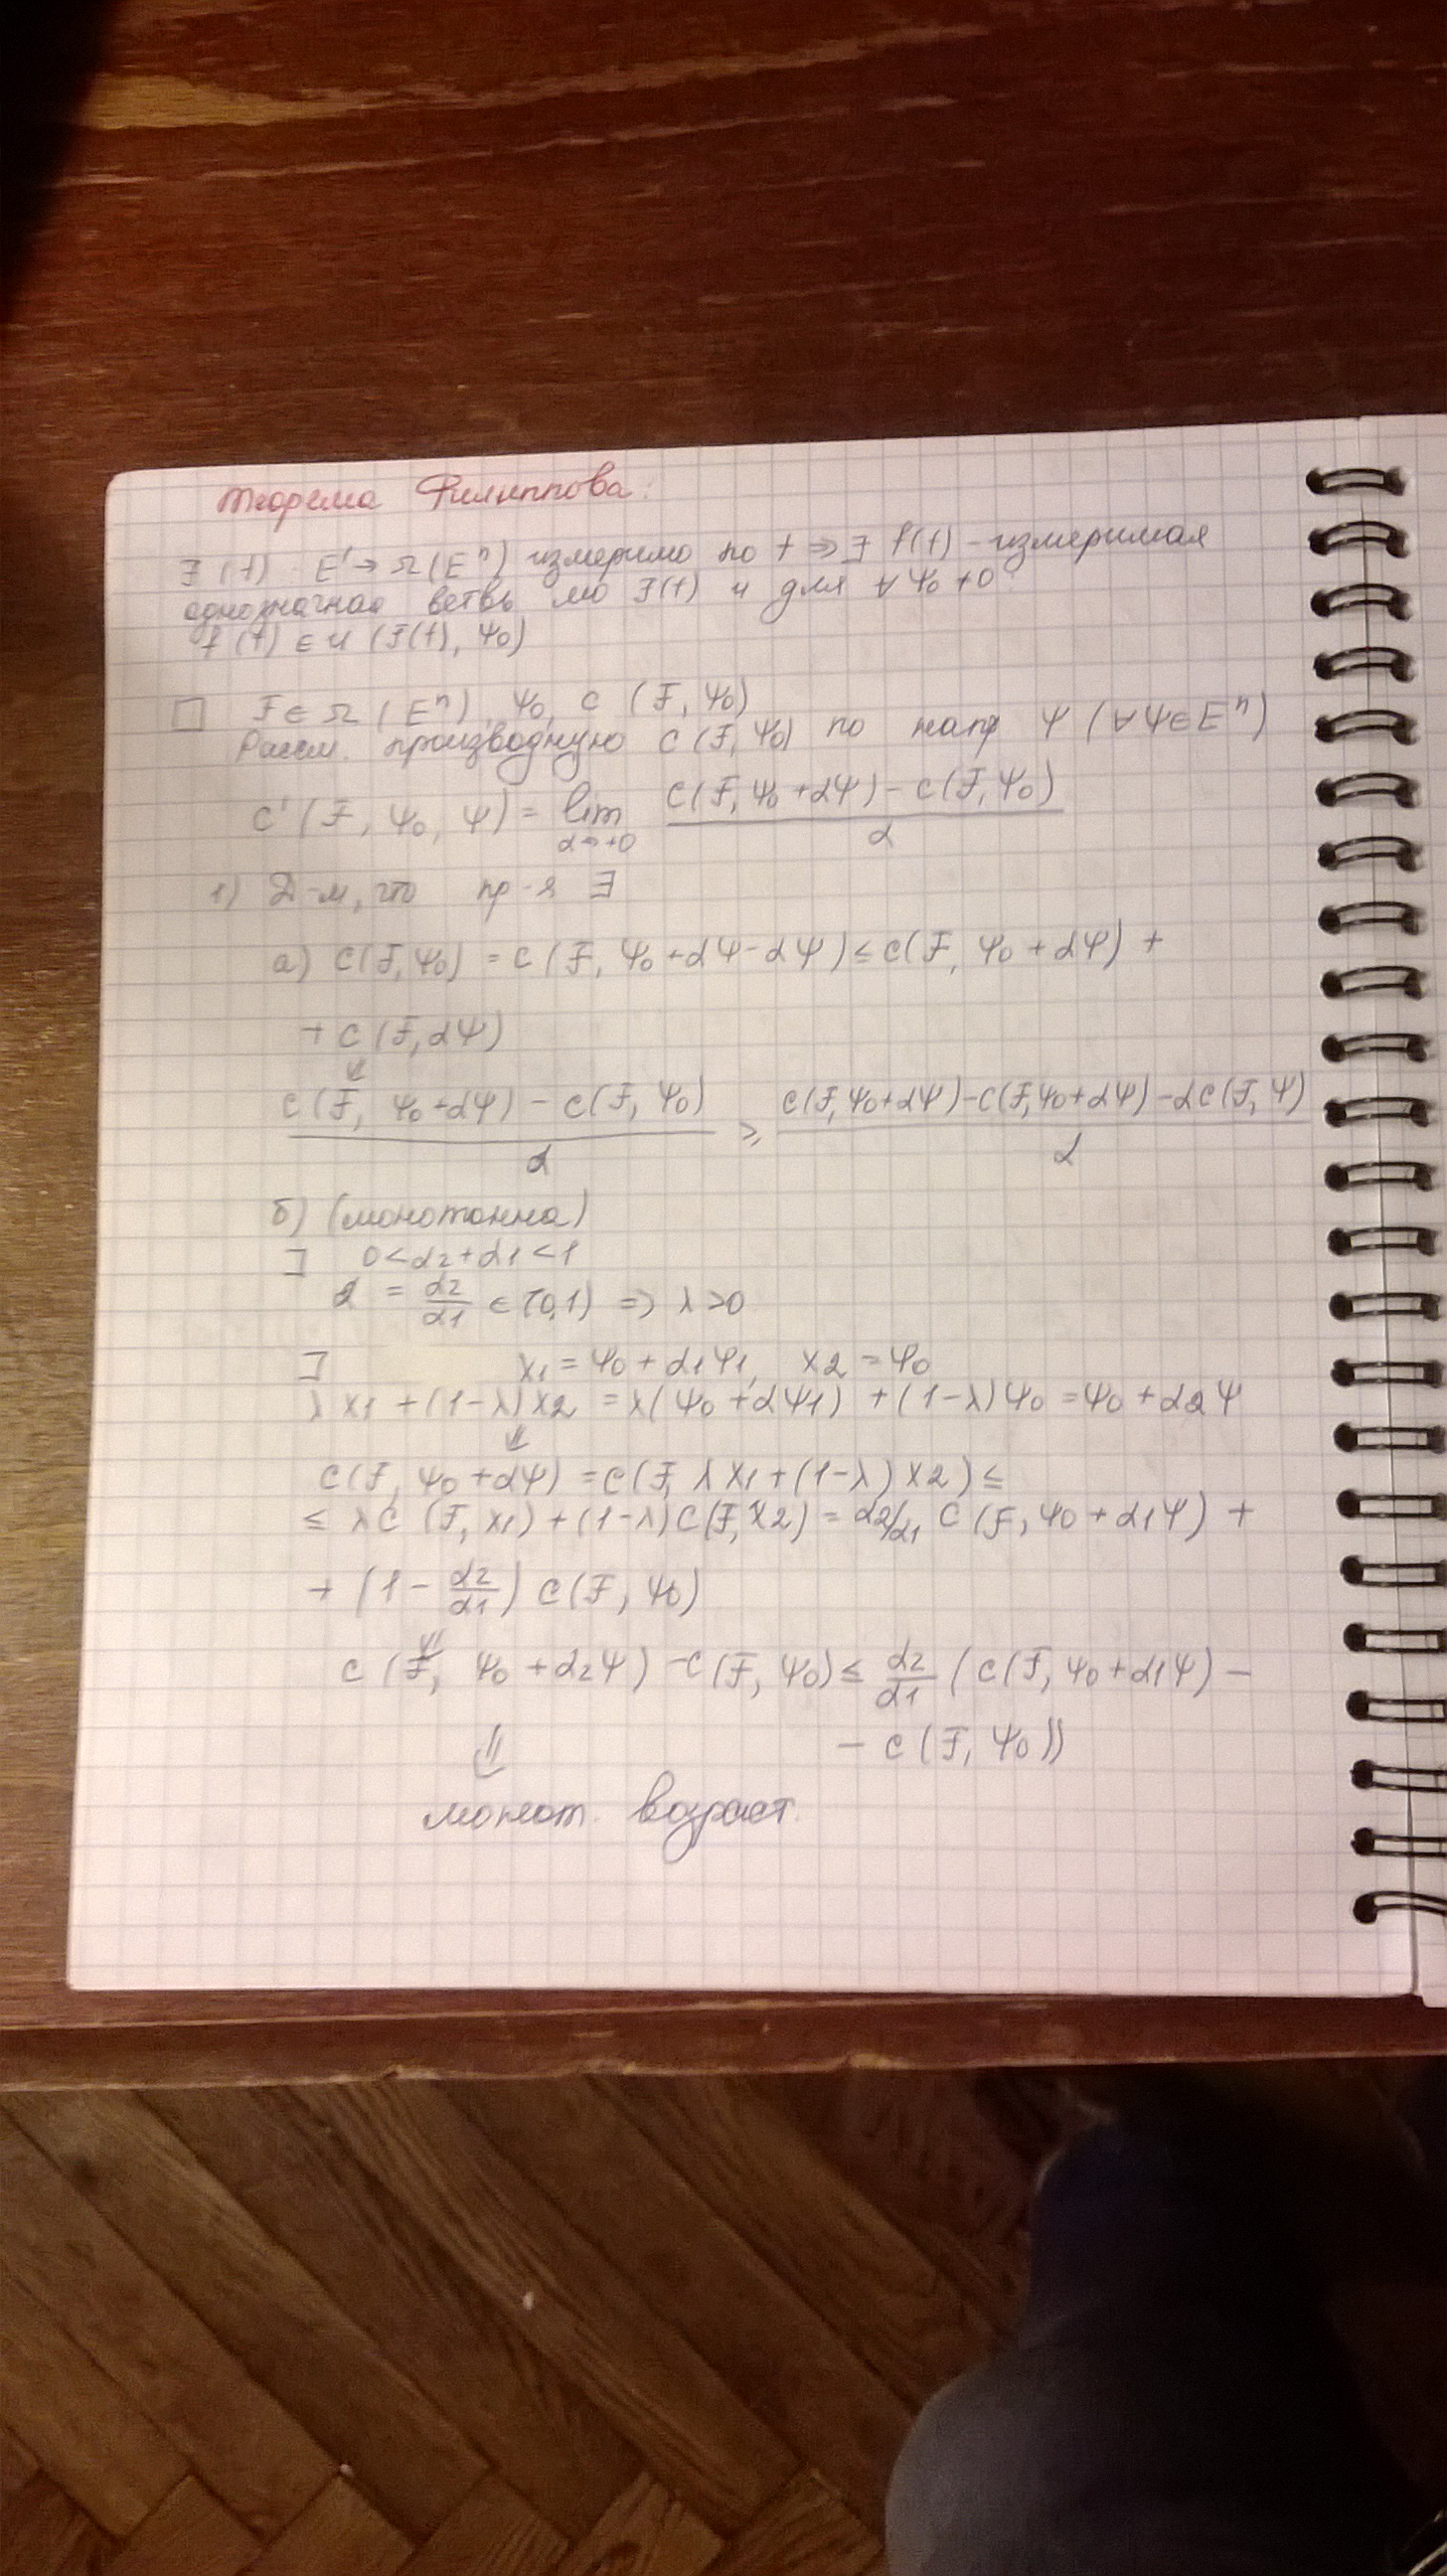 Теорема Филиппова:
F(t) E¹→Ω(Eⁿ) измеримо по t ⇒ ∃ f(t) - измеримая
однозначная ветвь мо F(t) и для ∀ψ₀≠0:
f(t) ∈ U(F(t), ψ₀)
□ F ∈ Ω(Eⁿ), ψ₀, c(F, ψ₀)
Рассм. производную c(F, ψ₀) по напр ψ (∀ψ∈Eⁿ)
c'(F, ψ₀, ψ) = lim_{α→+0} (c(F, ψ₀+αψ) - c(F, ψ₀))/α
1) Д-м, что пр-я ∃
а) c(F, ψ₀) = c(F, ψ₀+αψ-αψ) ≤ c(F, ψ₀+αψ) +
+ c(F, αψ)
⇓
(c(F, ψ₀+αψ) - c(F, ψ₀))/α ≥ (c(F, ψ₀+αψ) - c(F, ψ₀+αψ) - αc(F, ψ))/α
б) (монотонна)
] 0<α2+α1<1
λ = α2/α1 ∈ (0,1) ⇒ λ>0
] x1 = ψ0+α1ψ1, x2 = ψ0
λx1+(1-λ)x2 = λ(ψ0+αψ1) + (1-λ)ψ0 = ψ0+α2ψ
⇓
c(F, ψ0+αψ) = c(F, λx1+(1-λ)x2) ≤
≤ λc(F, x1)+(1-λ)c(F, x2) = α2/α1 c(F, ψ0+α1ψ) +
+ (1 - α2/α1) c(F, ψ0)
⇓
c(F, ψ0+α2ψ) - c(F, ψ0) ≤ α2/α1 (c(F, ψ0+α1ψ) -
- c(F, ψ0))
⇓
монот. возраст.